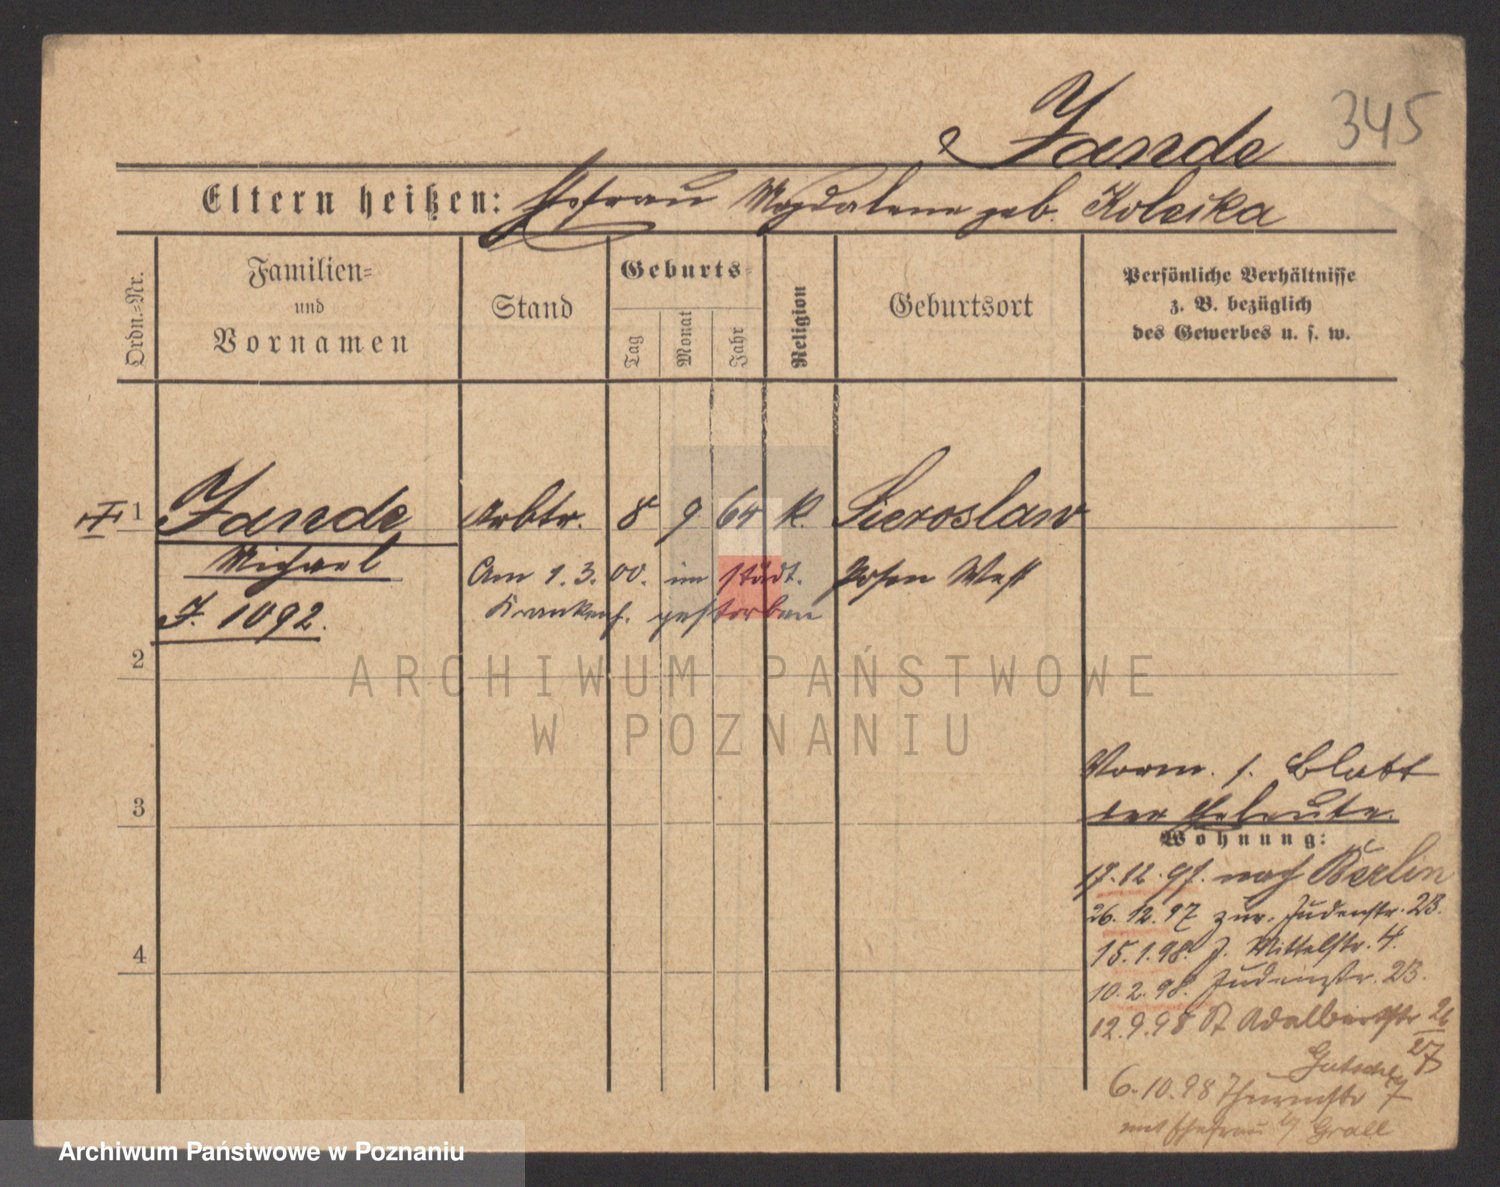 345
Jande
Eltern heißen: Ehefrau Magdalene geb. Koleska
Ordn.-Nr.
Familien-
und
Vornamen
Stand
Geburts-
Tag
Monat
Jahr
Religion
Geburtsort
Persönliche Verhältnisse
z. B. bezüglich
des Gewerbes u. s. w.
1 Jande Arbtr. 8 9 64 k. Sieroslaw
Michael Am 1.3.00. im städt. Posen West
J. 1092. Krankenh. gestorben
2
ARCHIWUM PAŃSTWOWE
W POZNANIU
Vorm. s. Blatt
3 der Eheleute.
Wohnung:
17.12.97. nach Berlin
26.12.97 zur. Judenstr. 23.
15.1.98. J. Mittelstr. 4.
4
10.2.98. Judenstr. 23.
12.9.98 St Adalbertstr 26/27
6.10.98 Thurmstr 7
mit Ehefrau b/ Grall
Archiwum Państwowe w Poznaniu